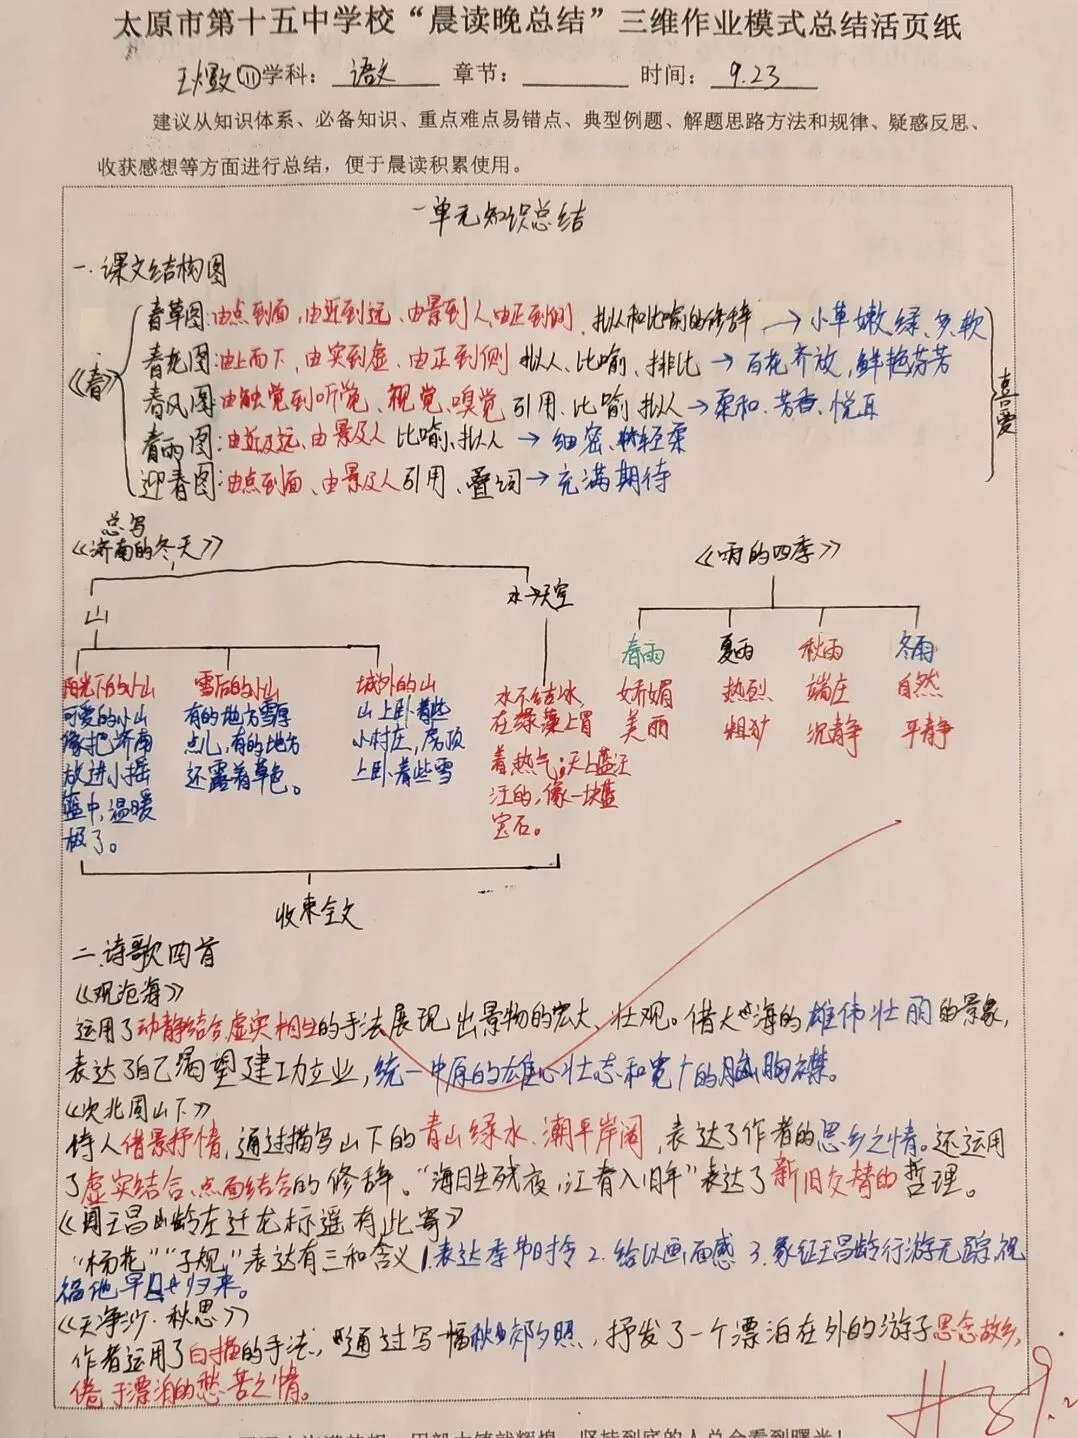 太原市第十五中学校“晨读晚总结”三维作业模式总结活页纸
学科：语文 章节： 时间：9.23
建议从知识体系、必备知识、重点难点易错点、典型例题、解题思路方法和规律、疑惑反思、
收获感想等方面进行总结，便于晨读积累使用。
一单元知识总结
一.课文结构图
《春》
春草图：由点到面，由近到远、由景到人、由正到侧、拟人和比喻的修辞→小草嫩、绿、多、软
春花图：由上而下，由实到虚、由正到侧 拟人、比喻、排比→百花齐放，鲜艳芬芳
春风图：由触觉到听觉、视觉、嗅觉 引用、比喻、拟人→柔和、芳香、悦耳
春雨图：由近及远、由景及人 比喻、拟人→细密、轻柔
迎春图：由点到面、由景及人 引用、叠词→充满期待
喜爱
总写
《济南的冬天》
山
水→天空
阳光下的小山
可爱的小山
像把济南
放进小摇
篮中，温暖
极了。
雪后的小山
有的地方雪厚
点儿，有的地方
还露着草色。
城外的山
山上卧着些
小村庄，房顶
上卧着些雪
水不结冰，
在绿藻上冒
着热气；天上蓝汪
汪的，像一块蓝
宝石。
收束全文
《雨的四季》
春雨 夏雨 秋雨 冬雨
娇媚 热烈 端庄 自然
美丽 粗犷 沉静 平静
二.诗歌四首
《观沧海》
运用了动静结合，虚实相生的手法展现出景物的宏大、壮观。借大海的雄伟壮丽的景象，
表达了自己渴望建功立业，统一中原的雄心壮志和宽广的胸襟。
《次北固山下》
诗人借景抒情，通过描写山下的青山绿水、潮平岸阔，表达了作者的思乡之情。还运用
了虚实结合、点面结合的修辞。“海日生残夜，江春入旧年”表达了新旧交替的哲理。
《闻王昌龄左迁龙标遥有此寄》
“杨花”“子规”表达有三和含义 1.表达季节时令 2.给以画面感 3.象征王昌龄行游无踪，祝
福他早日归来。
《天净沙·秋思》
作者运用了白描的手法，通过写一幅秋郊夕照，抒发了一个漂泊在外的游子思念故乡，
倦于漂泊的愁苦之情。